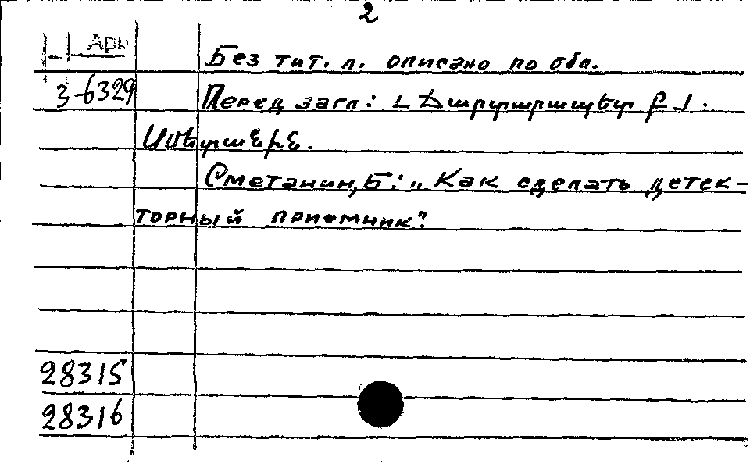 2
Арм
Без тит. л. описано по обл.
3-6329 Перед загл:
Сметанин, Б: „Как сделать детек-
торный приемник“
28315
28316